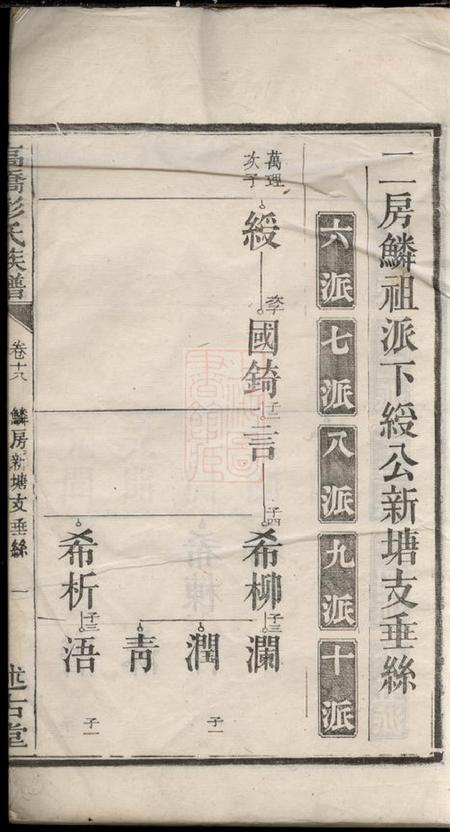 二房鱗祖派下綬公新塘支垂絲
六派 七派 八派 九派 十派
萬理
次子
綬
國錡
子二
言
子四
希柳
子三
瀾
潤
子一
青
希析
子三
浯
子一
高橋彭氏族譜
卷十八
鱗房新塘支垂絲
一
述古堂